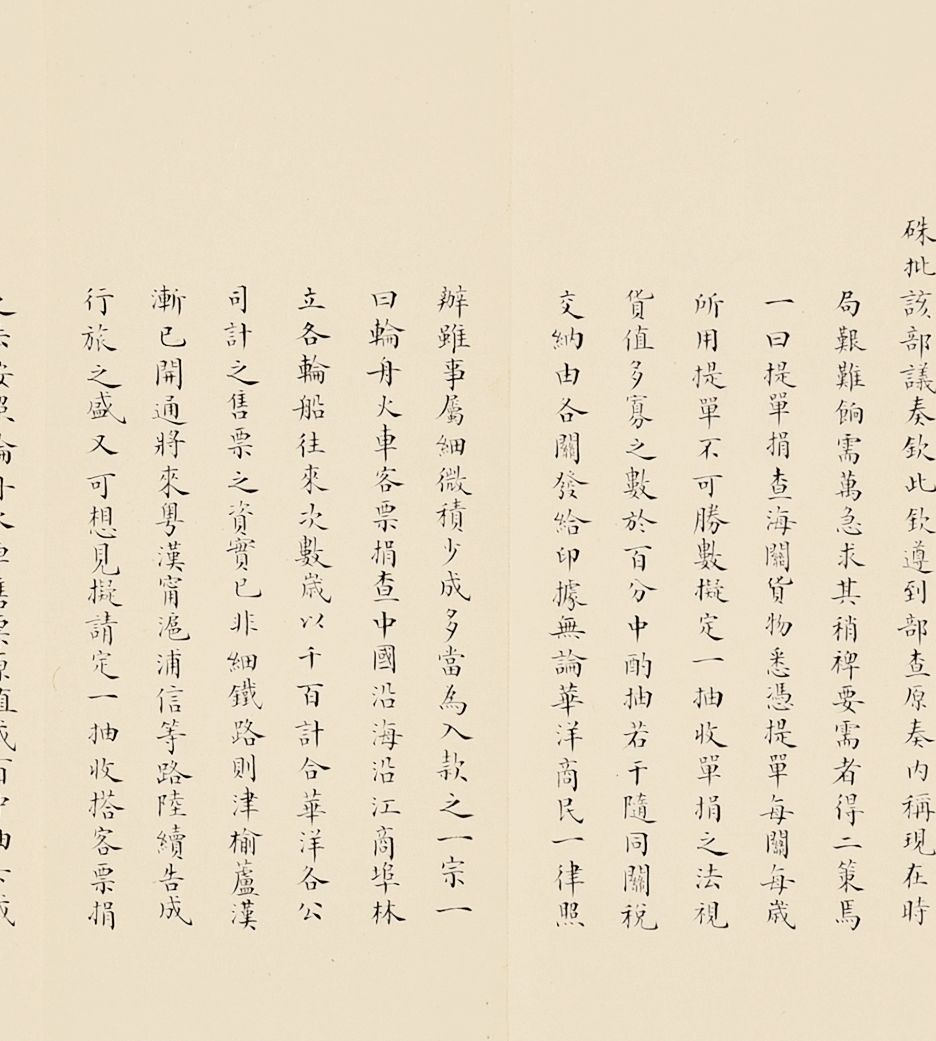 硃批該部議奏欽此欽遵到部查原奏内稱現在時
局艱難餉需萬急求其稍裨要需者得二策焉
一曰提單捐查海關貨物悉憑提單每關每歲
所用提單不可勝數擬定一抽收單捐之法視
貨值多寡之數於百分中酌抽若干隨同關稅
交納由各關發給印據無論華洋商民一律照
辦雖事屬細微積少成多當為入款之一宗一
曰輪舟火車客票捐查中國沿海沿江商埠林
立各輪船往來次數歲以千百計合華洋各公
司計之售票之資實已非細鐵路則津榆蘆漢
漸已開通將來粵漢甯滬浦信等路陸續告成
行旅之盛又可想見擬請定一抽收搭客票捐